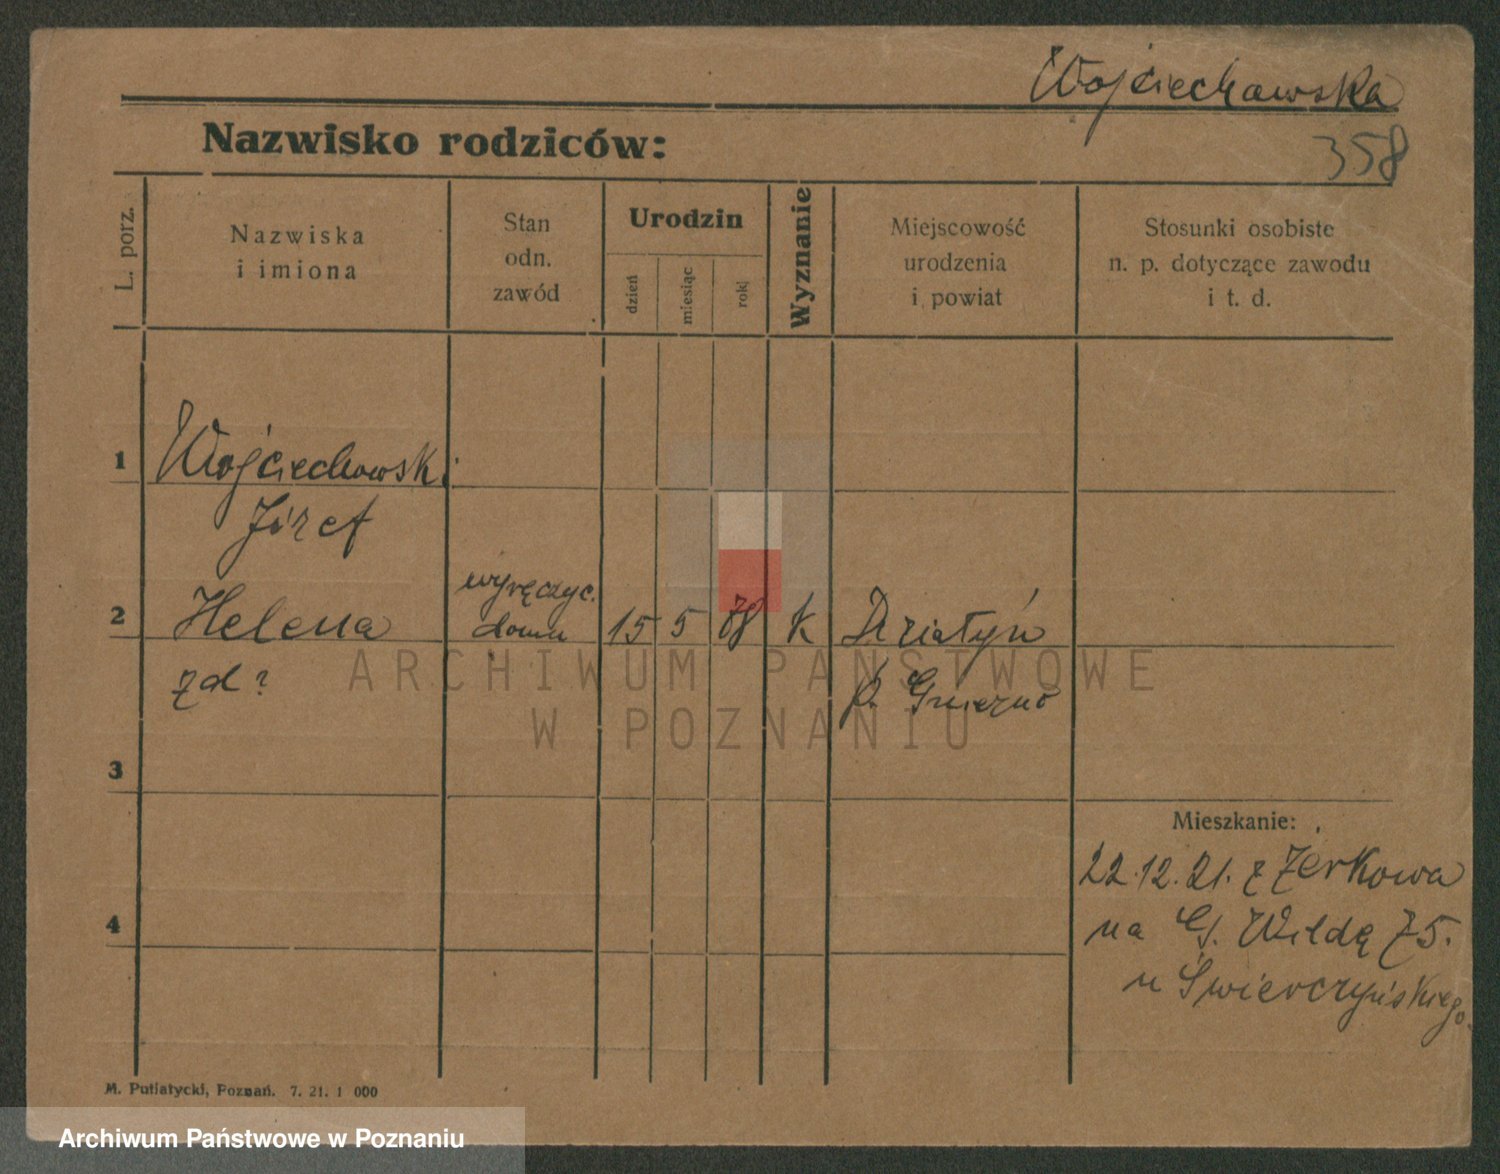 Wojciechowska
358
Nazwisko rodziców:
L. porz.
Nazwiska
i imiona
Stan
odn.
zawód
Urodzin
dzień
miesiąc
rokj
Wyznanie
Miejscowość
urodzenia
i powiat
Stosunki osobiste
n. p. dotyczące zawodu
i t. d.
1
Wojciechowski
Józef
2
Helena
wyręczyc.
domu
15
5
78
k
Działyń
zd?
p. Gniezno
3
Mieszkanie:
22.12.21. z Żerkowa
4
na G. Wildę 75.
u Świerczyńskiego
M. Putiatycki, Poznań. 7. 21. 1 000
ARCHIWUM PAŃSTWOWE
W POZNANIU
Archiwum Państwowe w Poznaniu